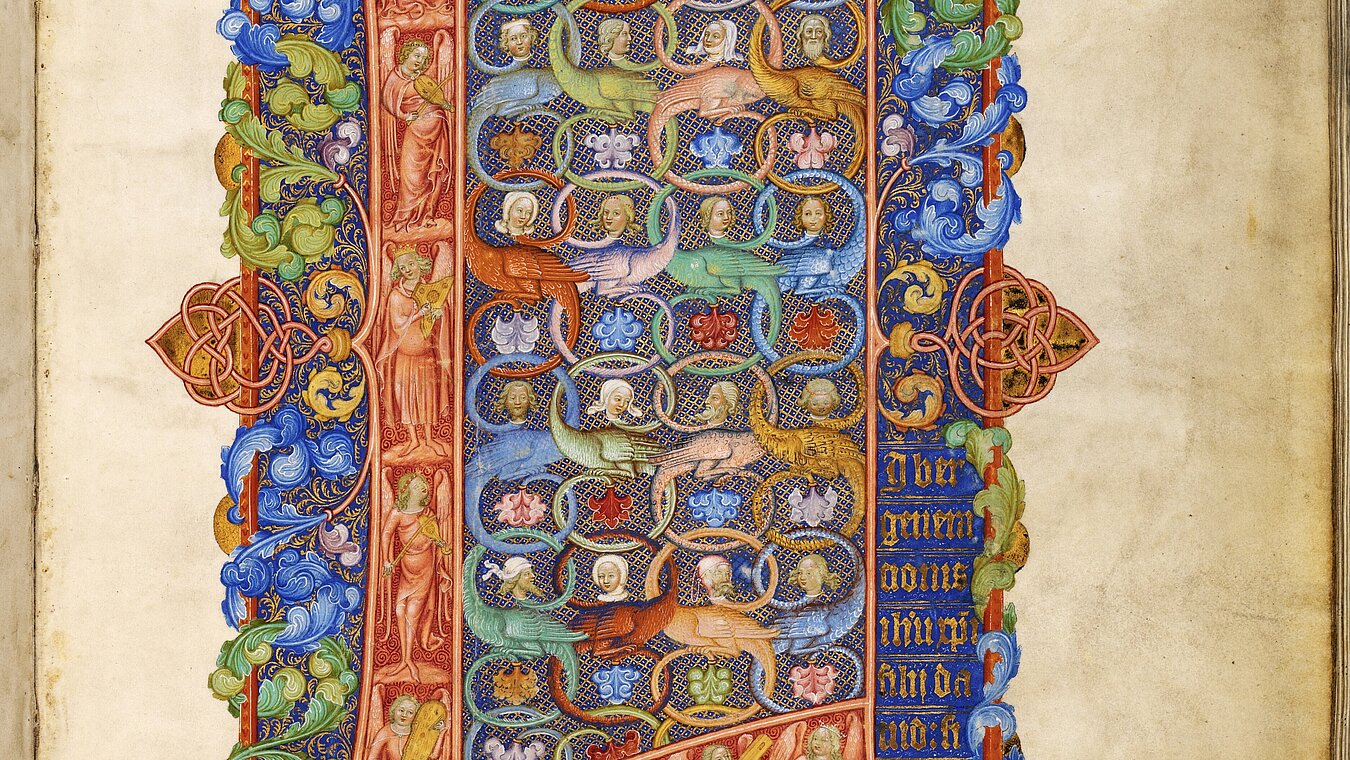 I ber
genera
cionis
ihu xpi
filij da
uid: fi